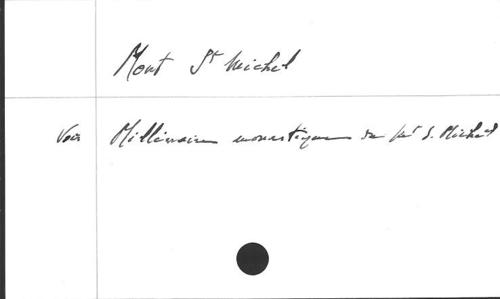 Mont St Michel
Voir Millénaire monastique du Mt S. Michel